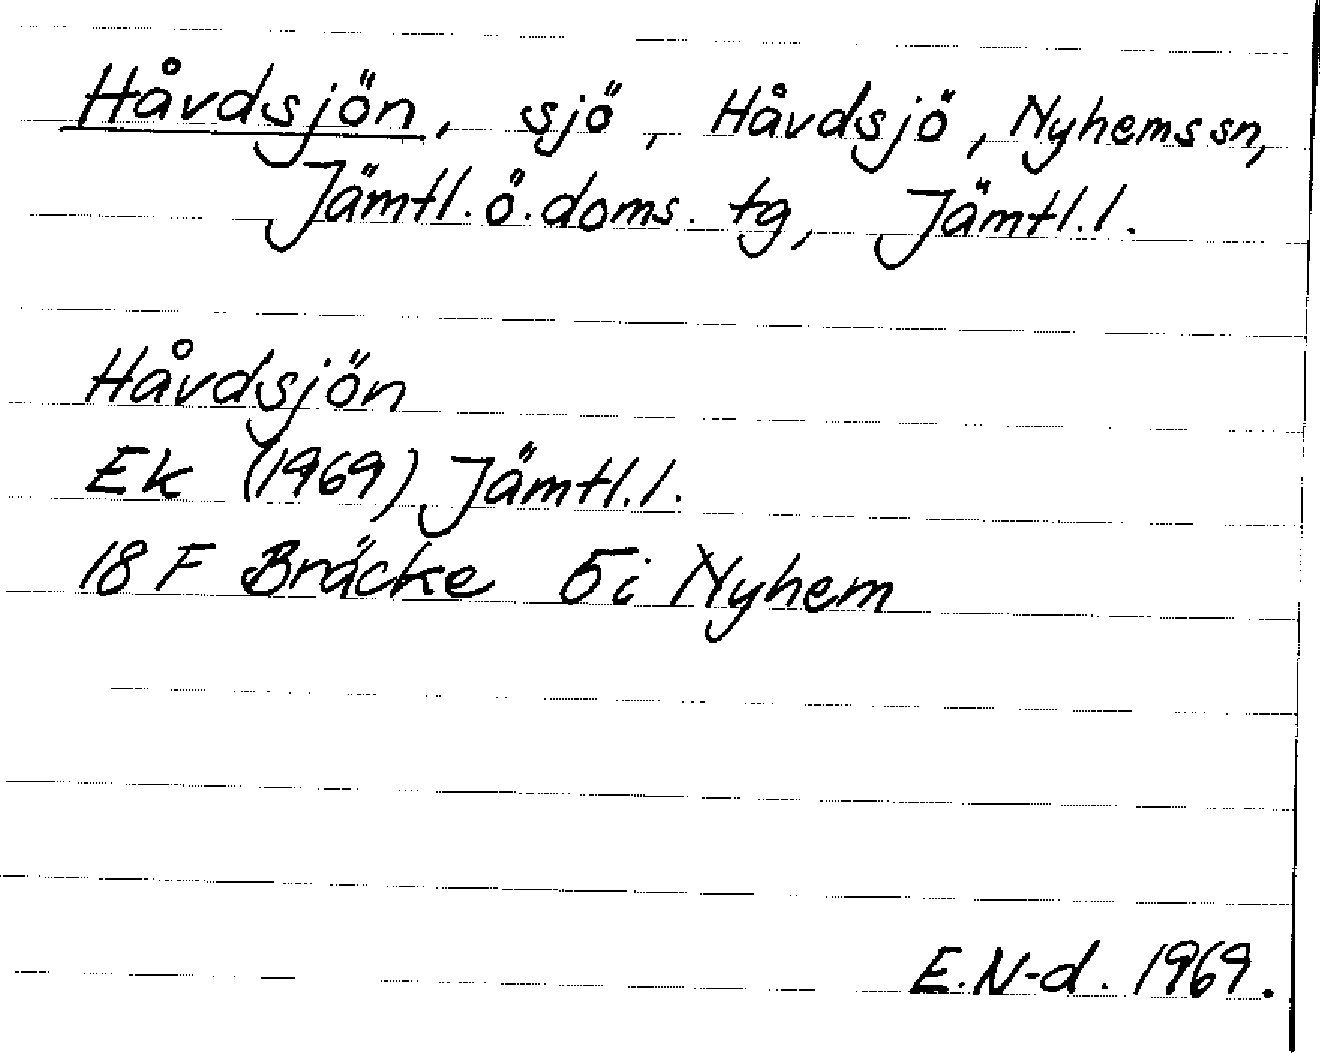 Håvdsjön, sjö, Håvdsjö, Nyhems sn,
Jämtl. ö. doms. tg, Jämtl. l.
Håvdsjön
Ek (1969) Jämtl. l.
18 F Bräcke 5i Nyhem
E. N-d. 1969.